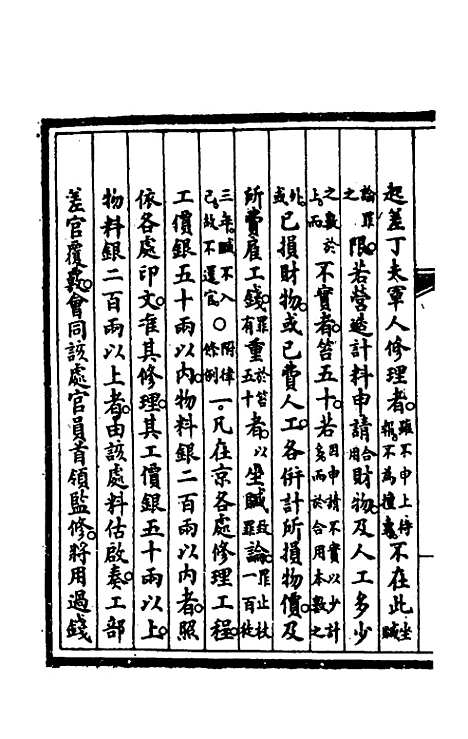 起差丁夫軍人修理者雖不申上待報不為擅專不在此坐贓
論罪之限若營造計料申請合用財物及人工多少
之數於上而不實者笞五十若因申請不實以少計多而於合用本數之
外或已損財物或已費人工各併計所損物價及
所費雇工錢罪有重於笞五十者以坐贓致論罪止杖一百徒
三年贓不入己故不還官○附律條例一凡在京各處修理工程
工價銀五十兩以內物料銀二百兩以內者照
依各處印文准其修理其工價銀五十兩以上
物料銀二百兩以上者由該處料估啟奏工部
差官覆覈會同該處官員首領監修將用過錢